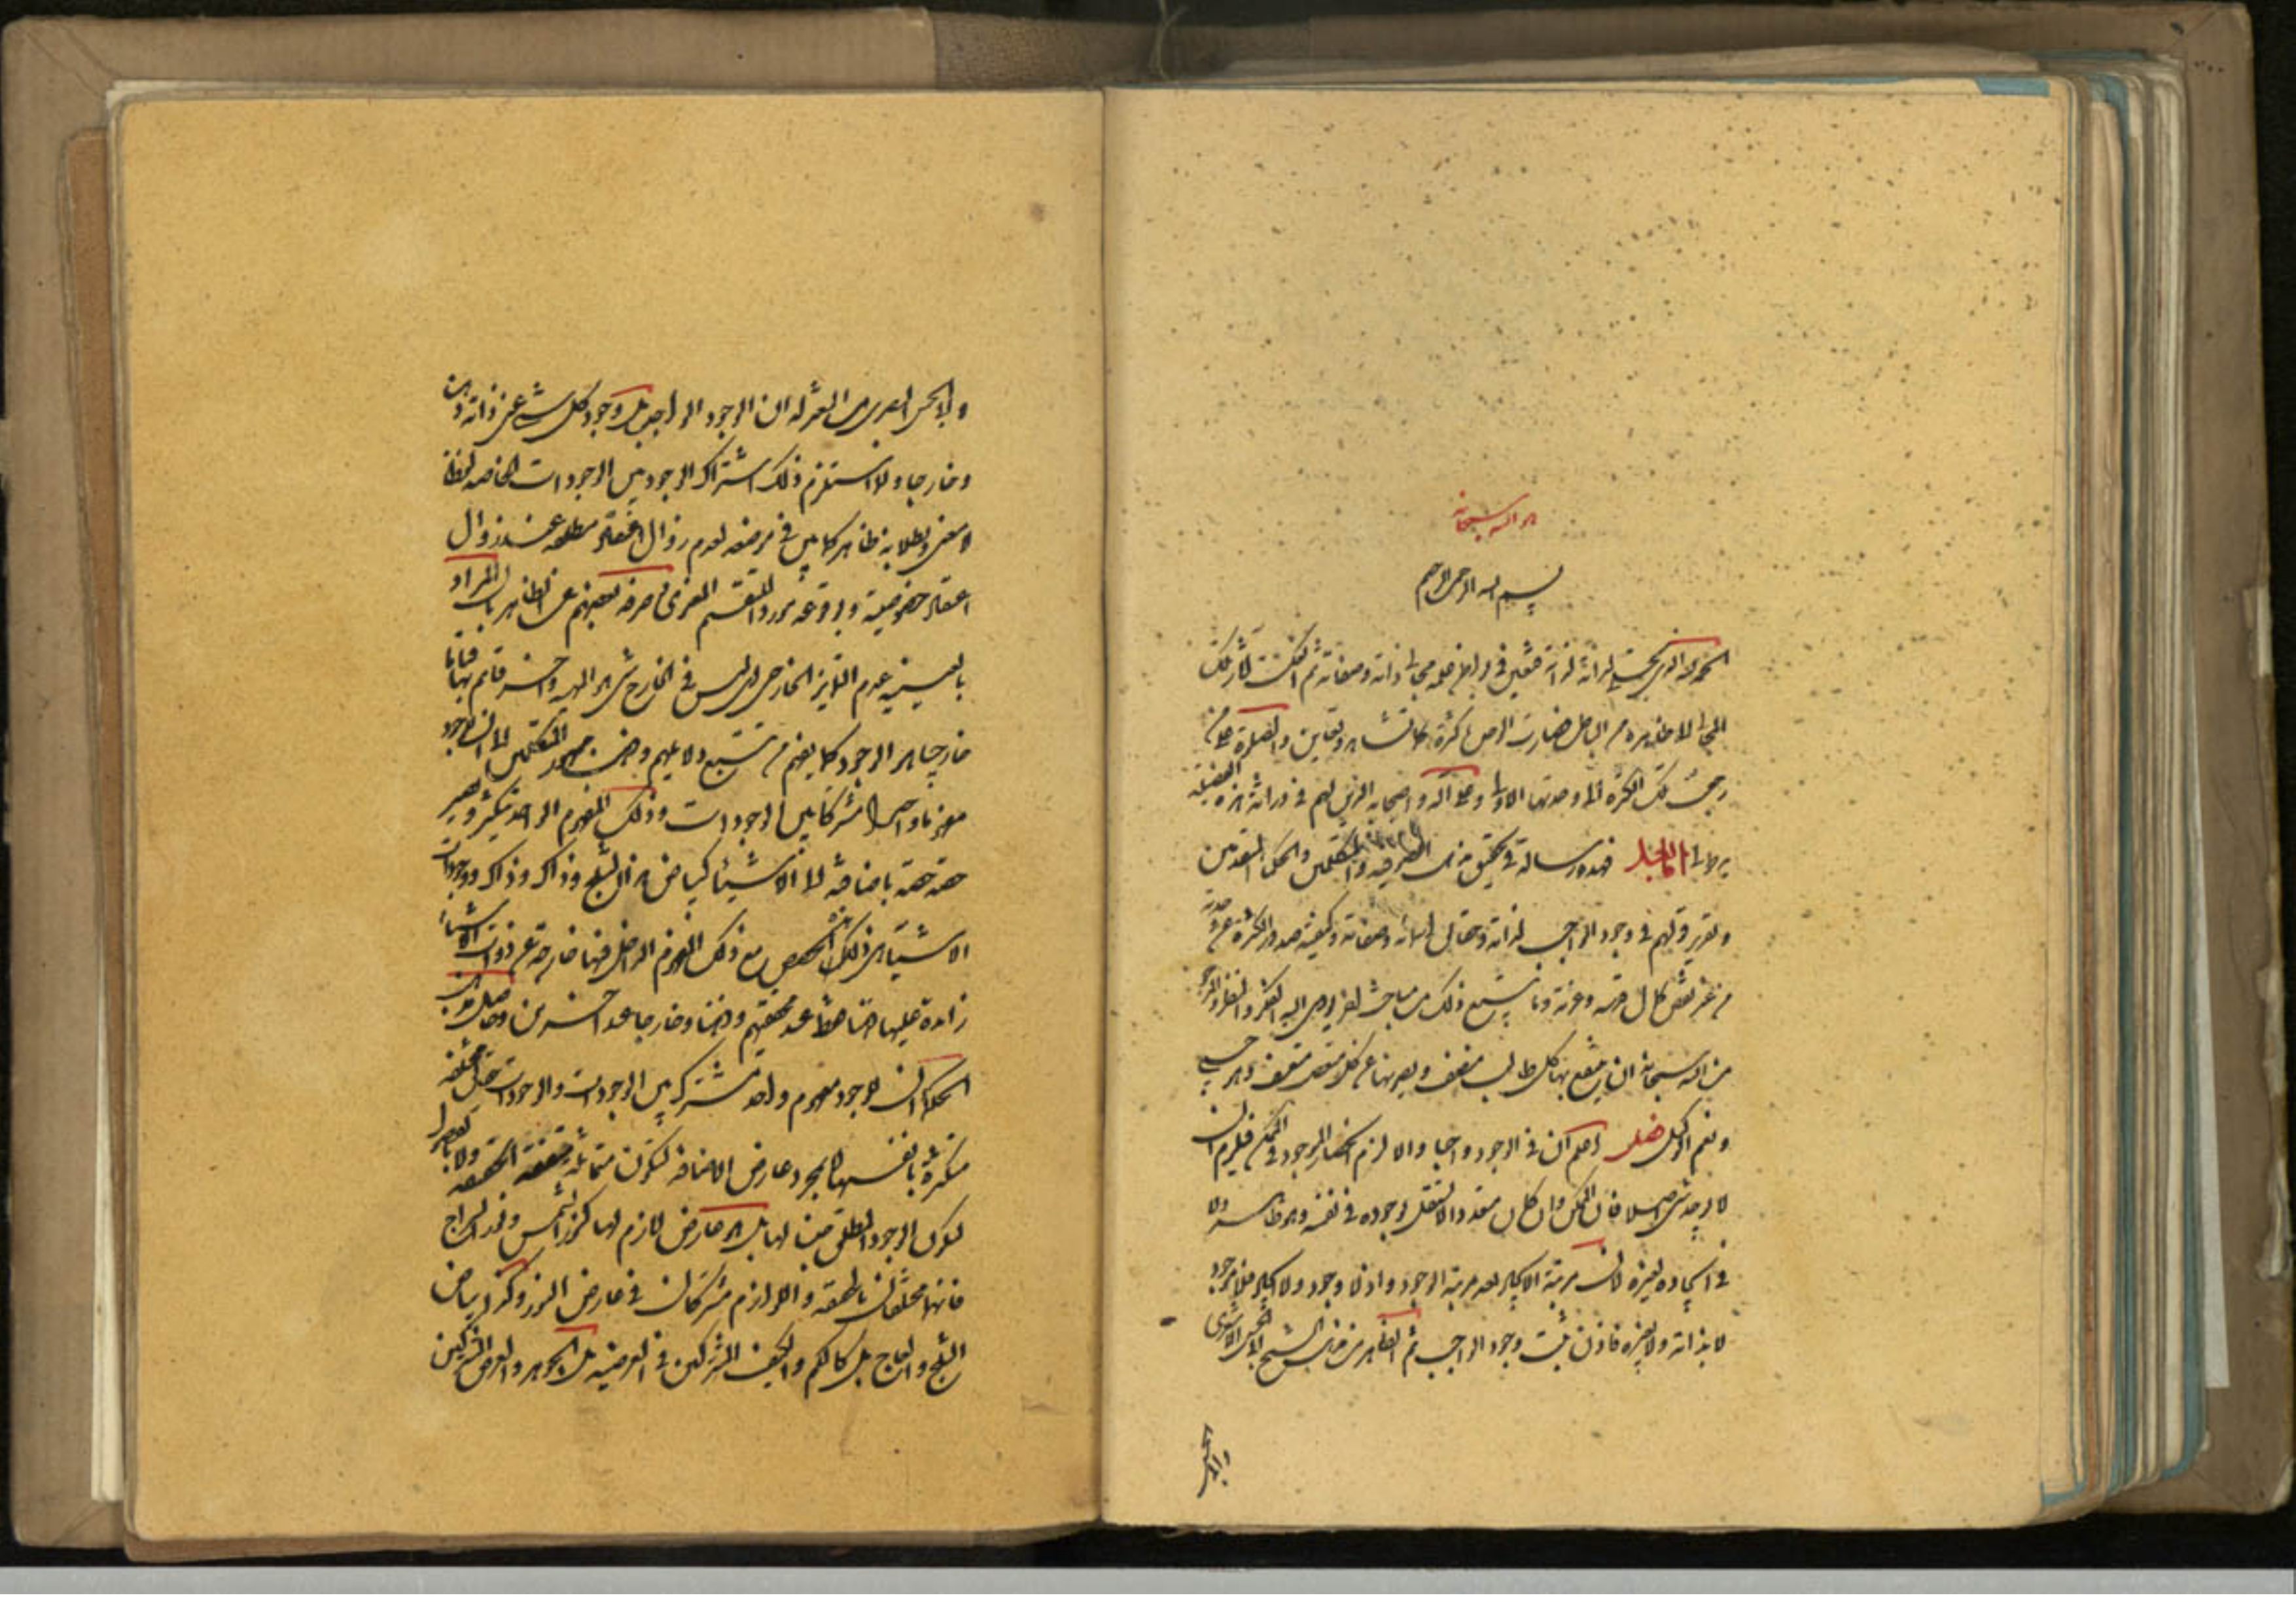 هو الله سبحانه
بسم الله الرحمن الرحيم
الحمد لله الذي تجلى لذاته بذاته فتعين في باطن علمه مجالي ذاته وصفاته ثم انعكست آثار تلك
المجالي الى ظاهره من الباطن فصارت الوحدة كثرة كما تشاهد وتعاين والصلوة على من
رجعت تلك الكثرة الى وحدتها الاولى وعلى آله واصحابه الذين لهم في وراثة هذه الفضيلة
يد طولى اما بعد فهذه رسالة في تحقيق مذهب الصوفية والمتكلمين والحكماء المتقدمين
وتقرير قولهم في وجود الواجب لذاته وحقائق اسمائه وصفاته وكيفية صدور الكثرة عن وحدته
من غير نقص في كمال قدسه وعزته وما يتبع ذلك من مباحث اخر يؤدي اليه الفكر والنظر والمرجو
من الله سبحانه ان ينتفع بها كل طالب منصف ويصونها عن كل متعصب متعسف وهو حسبي
ونعم الوكيل فصل اعلم ان في الوجود واجبا والا لزم انحصار الموجود في الممكن فيلزم ان
لا يوجد شيء اصلا فان الممكن وان كان متعددا لا يستقل بوجوده في نفسه وهو ظاهر ولا
في ايجاده لغيره لان مرتبة الايجاد بعد مرتبة الوجود واذ لا وجود ولا ايجاد فلا موجود
لا بذاته ولا بغيره فاذن ثبت وجود الواجب ثم الظاهر من مذهب الشيخ ابي الحسن الاشعري
وابي الحسين
وابي الحسين البصري من المعتزلة ان وجود الواجب بل وجود كل شيء عين ذاته ذهنا
وخارجا ولما استلزم ذلك اشتراك الوجود بين الوجودات الخاصة لفظا
لا معنى وبطلانه ظاهر كما بين في موضعه لعدم زوال اعتقاد مطلقه عند زوال
اعتقاد خصوصيته ولوقوعه مورد التقسيم المعنوي صرفه بعضهم عن الظاهر بان المراد
بالعينية عدم التمايز الخارجي اي ليس في الخارج شيء هو الماهية وآخر قائم بها قياما
خارجيا هو الوجود كما يفهم من تتبع دلائلهم وذهب جمهور المتكلمين الى ان للوجود
مفهوما واحدا مشتركا بين الوجودات وذلك المفهوم الواحد يتكثر ويصير
حصة حصة باضافته الى الاشياء كبياض هذا الثلج وذاك وذاك ووجودات
الاشياء هي ذلك الحصص مع ذلك المفهوم الداخل فيها خارجة عن ذوات الاشياء
زائدة عليها ذهنا فقط عند محققيهم وذهنا وخارجا عند آخرين وحاصل مذهب
الحكماء ان للوجود مفهوم واحد مشترك بين الوجودات والوجودات حقائق مختلفة
متكثرة بانفسها لا بمجرد عارض الاضافة لتكون متماثلة متفقة الحقيقة ولا بالفصول
ليكون الوجود المطلق جنسا لها بل هو عارض لازم لها كنور الشمس ونور السراج
فانهما مختلفان بالحقيقة واللوازم مشتركان في عارض النور وكذا بياض
الثلج والعاج بل كالكم والكيف المشتركين في العرضية بل الجوهر والعرض المشتركين